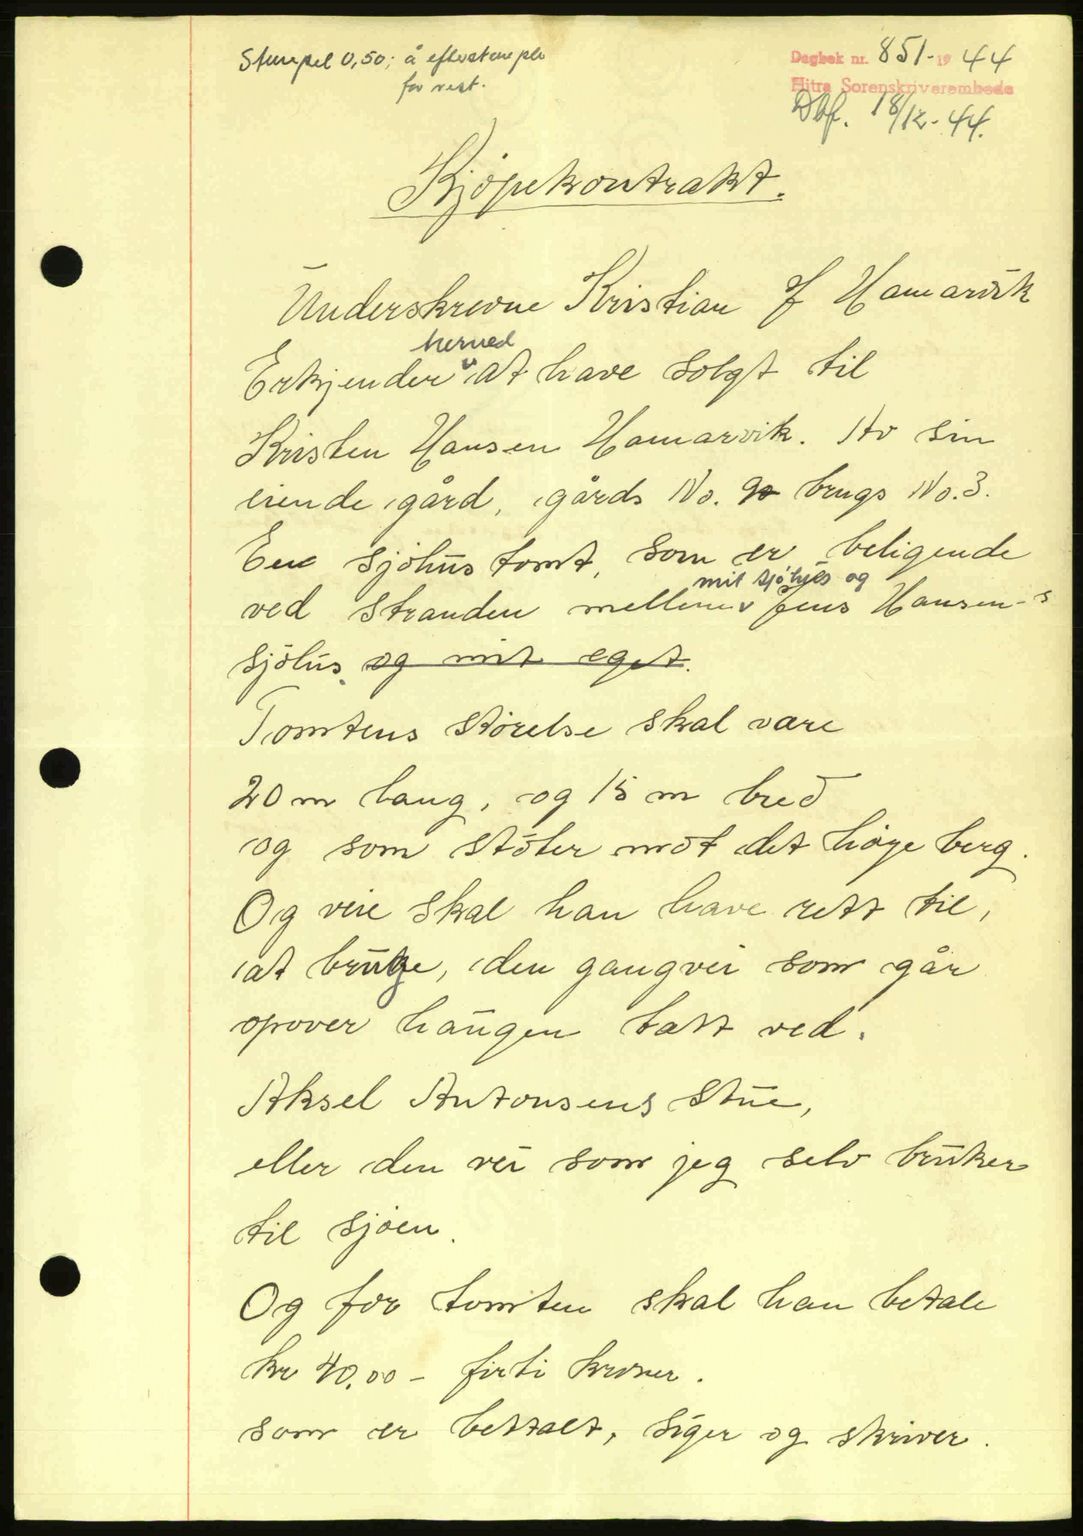 Stempel 0,50; å efterstemple
for rest.
Dagbok nr. 851 - 1944
Hitra Sorenskriverembede
Dbf. 18/12-44.
Kjöpekontrakt.
Underskrevne Kristian J Hamarvik
herved
Erkjender at have solgt til
Kristen Hansen Hamarvik. Av sin
eiende gård, gårds No. brugs No. 3.
En sjöhus tomt, som er beligende
mit sjöhus og
ved stranden mellem Jens Hansen-s
sjöhus. og mit eget.
Tomtens störelse skal være
20 m lang, og 15 m bred
og som støter mot det høge berg.
Og veie skal han have rett til,
at bruke, den gangvei som går
opover haugen tatt ved.
Aksel Antonsens stue,
eller den vei som jeg selv bruker
til sjøen.
Og for tomten skal han betale
kr 40.00 - firti kroner.
som er bettalt, siger og skriver.